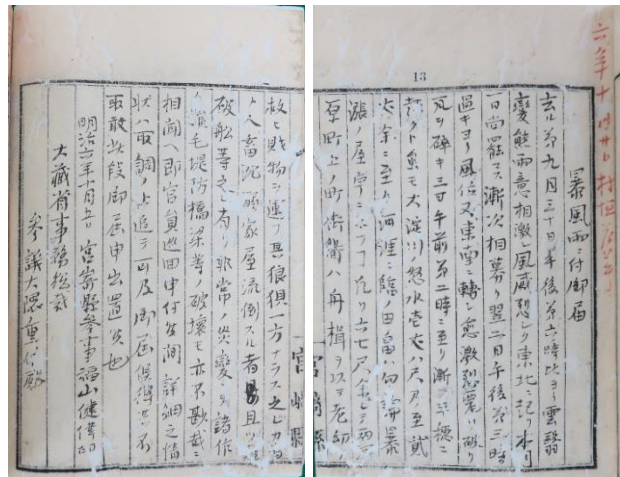 13
暴風雨付御届
去ル第九月三十日午後第六時比ヨリ雲翳
変態雨意相激シ風威烈シク東北ニ起リ本月
一日尚罷マス漸次相募リ翌二日午後第三時
過キヨリ風位又東南ニ転シ愈激烈震ハ破リ
瓦ヲ砕キ三日午前第二時ニ至リ漸ク平穏ニ
モ大淀川ノ怒水壱丈八尺乃至弐
丈余ニ至リ河涯臨ノ田畠ハ勿論暴
漲ノ屋宇ニ六七尺
町上ノ町街衢ハ舟揖ヲ以テ老幼ヲ
宮崎県
救ヒ貨物ヲ運ヒ其狼狽一方ナラス之レカ為
人畜沈溺家屋流倒スル者且ツ
破船等之レ有リ非常ノ災変ニテ諸作
不毛堤防橋梁等ノ破壊モ亦不尠哉ニ
相聞ヘ即官員巡回申付候間詳細之情
状ハ取調ノ上追テ可及御届候得共不
取敢此段御届申出置候也
明治六年十月五日 宮崎県参事福山健偉
大蔵省事務総裁
参議大隈重信殿